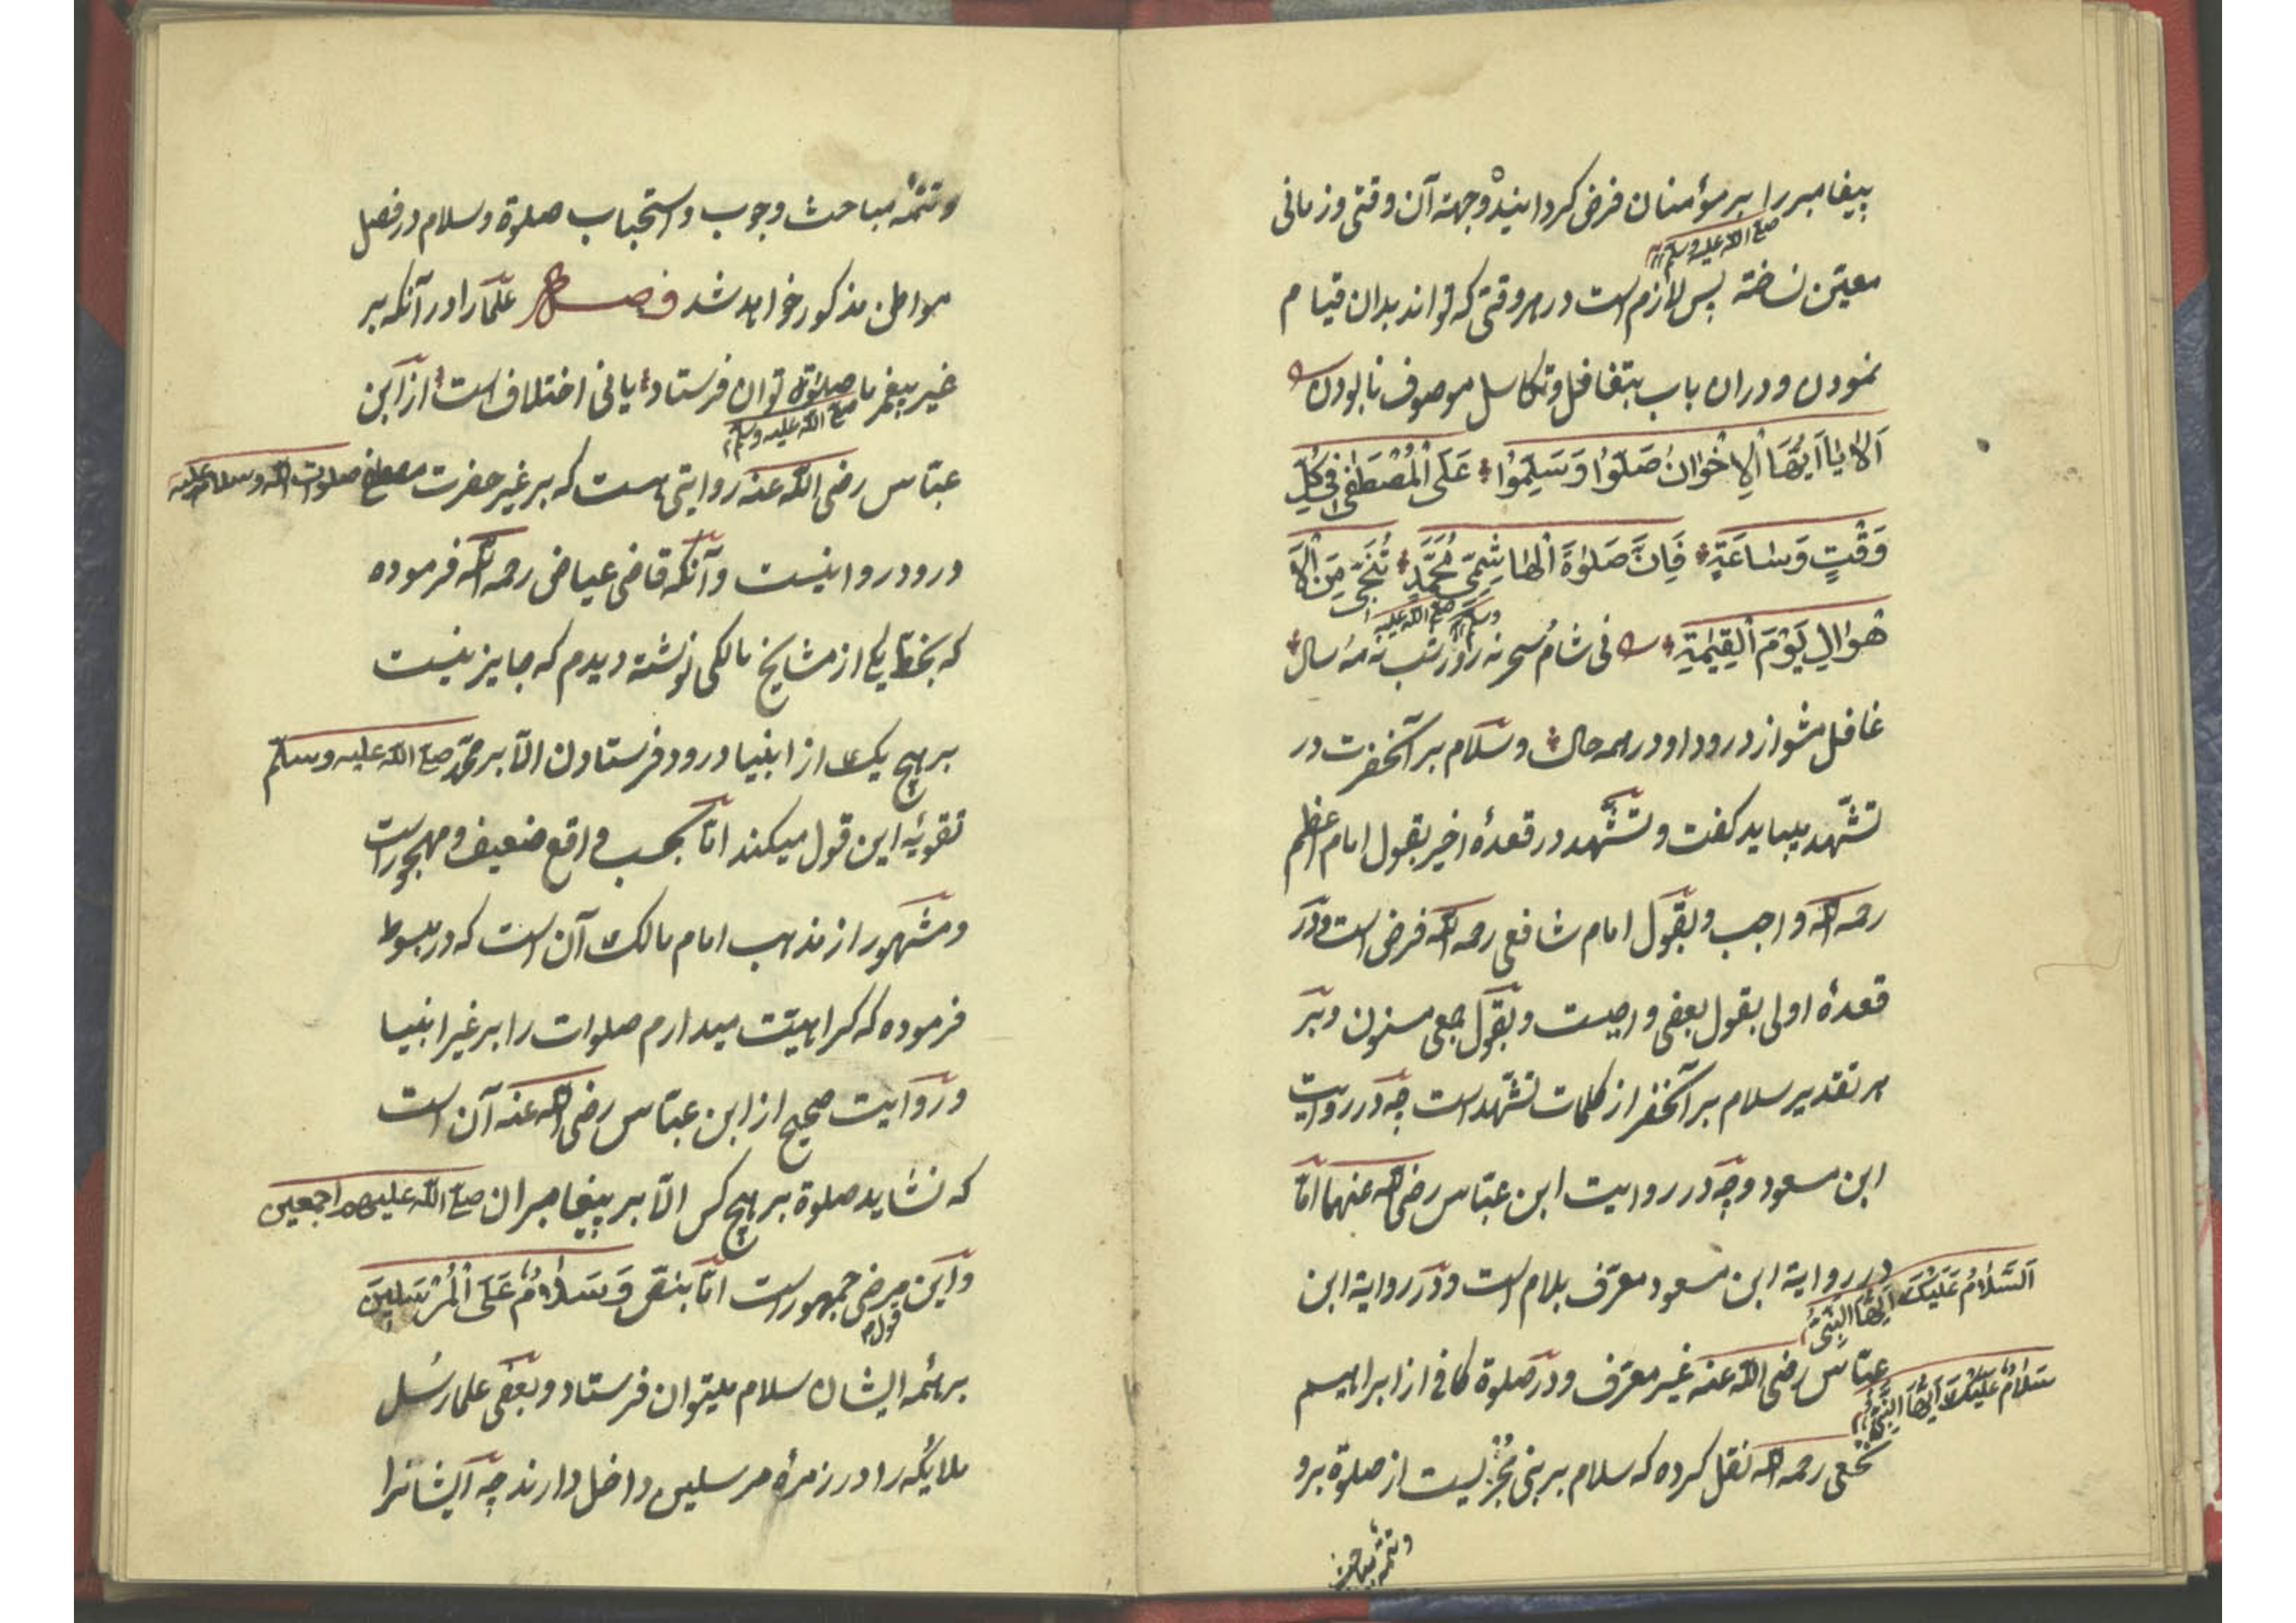 پیغامبر را بر مؤمنان فرض کردانیده وجهة آن وقتی وزمانی
صلی الله علیه وسلم
معیّن نساخته پس لازم است در هر وقتی که تواند بدان قیام
نمودن ودران باب بتغافل وتکاسل موصوف نابودن
اَلَا یَا اَیُّهَا الْاِخْوَانُ صَلُّوا وَسَلِّمُوا عَلَی الْمُصْطَفٰی فِی کُلِّ
وَقْتٍ وَسَاعَةٍ فَاِنَّ صَلٰوةَ الْهَاشِمِیِّ مُحَمَّدٍ تُنَجِّی مِنَ الْاَ
صلی الله علیه وسلم
هْوَالِ یَوْمَ الْقِیٰمَةِ نی شام سحر نه روز شب نه مه سال
غافل مشو از درود او در همه حال وسلام بر آنحضرت در
تشهّد میباید کفت وتشهّد در قعدهٔ اخیر بقول امام اعظم
رحمه الله واجب وبقول امام شافعی رحمه الله فرض است ودر
قعدهٔ اولی بقول بعضی واجبست وبقول جمعی مسنون وبر
هر تقدیر سلام بر آنحضرت از کلمات تشهّد است چه در روایت
ابن مسعود وچه در روایت ابن عبّاس رضی الله عنهما امّا
در روایة ابن مسعود معرّف بلام است ودر روایة ابن
اَلسَّلَامُ عَلَیْکَ اَیُّهَا النَّبِیُّ
عبّاس رضی الله عنه غیر معرّف ودر صلوة کافی از ابراهیم
سَلَامٌ عَلَیْکَ اَیُّهَا النَّبِیُّ
نخعی رحمه الله نقل کرده که سلام بر نبی مُجْزیست از صلوة برو
وتتمّهٔ مباحث
وتتمّهٔ مباحث وجوب واستحباب صلوة وسلام در فصل
مواطن مذکور خواهد شد فصل علما را در آنکه بر
غیر پیغمبر ما صلوة توان فرستاد یا نی اختلاف است از ابن
صلی الله علیه وسلم
عبّاس رضی الله عنه روایتی هست که بر غیر حضرت مصطفی صلوات الله وسلامه علیه
درود روا نیست وآنکه قاضی عیاض رحمه الله فرموده
که بخط یکی از مشایخ مالکی نوشته دیدم که جایز نیست
بر هیچ یک از انبیا درود فرستادن الّا بر محمّد صلی الله علیه وسلم
تقویهٔ این قول میکند امّا بحسب واقع ضعیف ومهجور است
ومشهور از مذهب امام مالک آن است که در مبسوط
فرموده که کراهیّت میدارم صلوات را بر غیر انبیا
وروایت صحیح از ابن عبّاس رضی الله عنه آن است
که نشاید صلوة بر هیچ کس الّا بر پیغامبران صلی الله علیهم اجمعین
واین مرضی جمهور است امّا بنصّ وَسَلَامٌ عَلَی الْمُرْسَلِینَ
قول
بر همه ایشان سلام میتوان فرستاد وبعضی علما رسُل
ملایکه را در زمرهٔ مرسلین داخل دارند چه ایشانرا